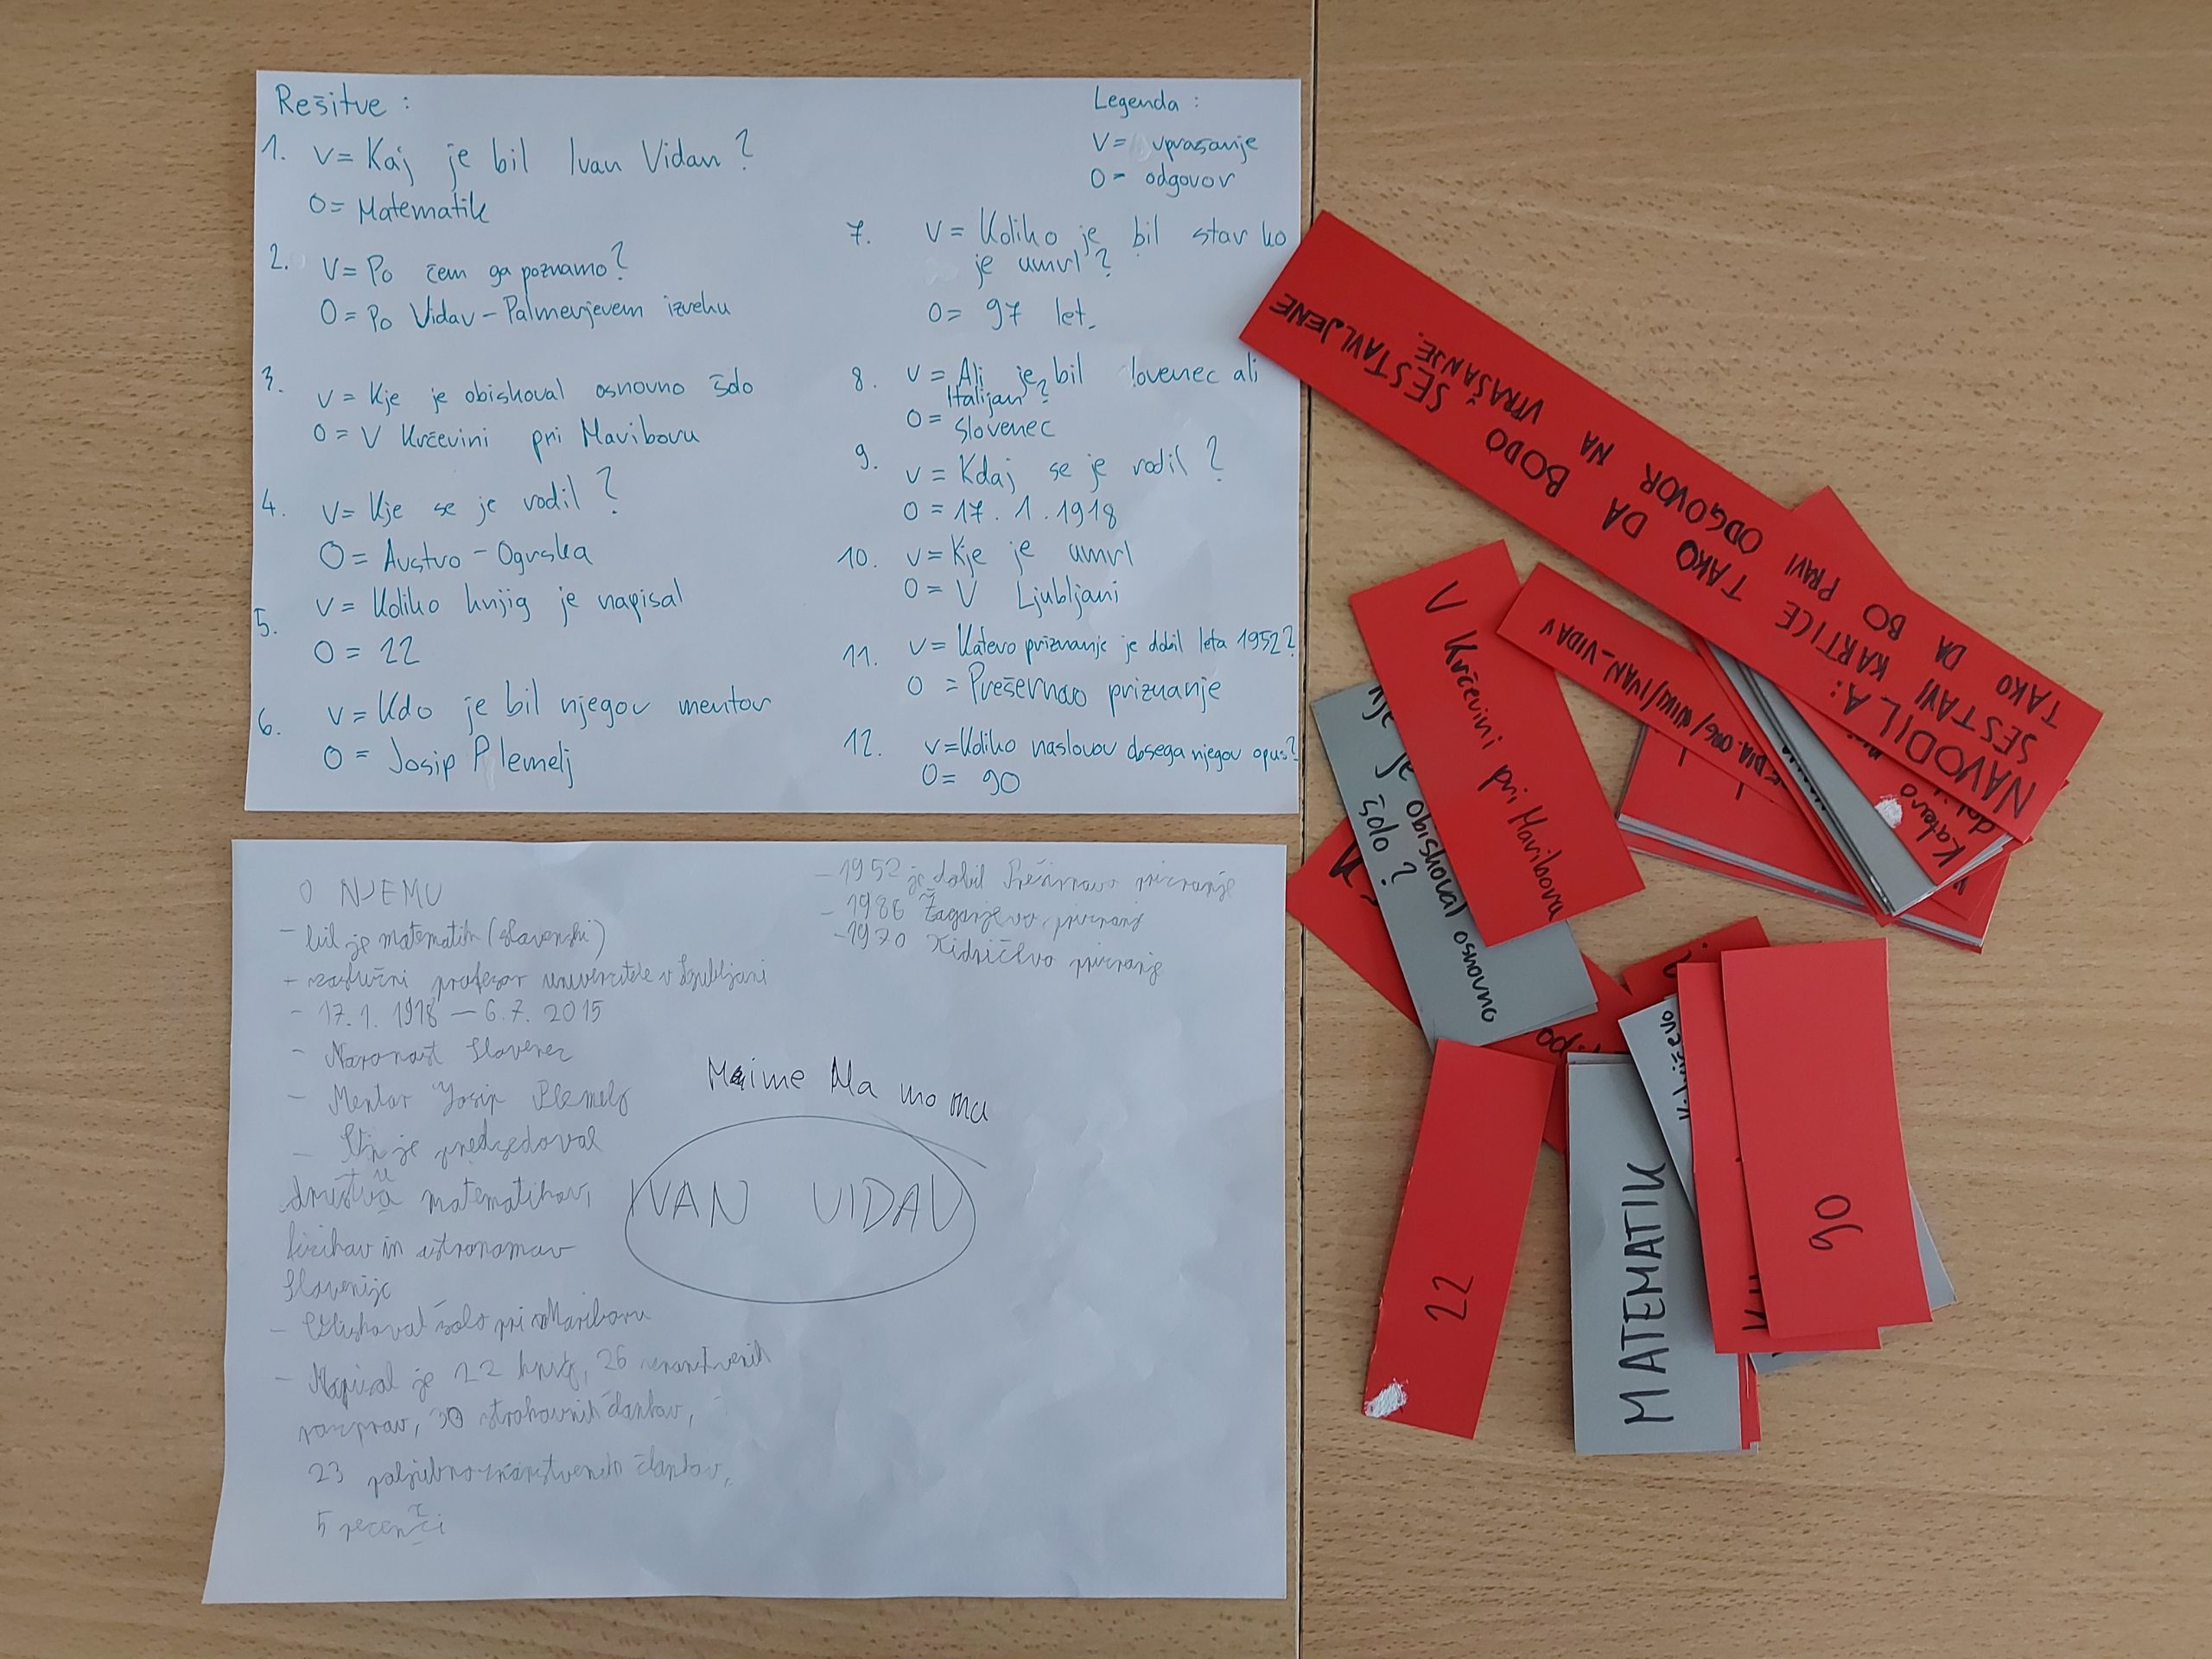 Rešitve :
1. V= Kaj je bil Ivan Vidav ?
O= Matematik
2. V= Po čem ga poznamo?
O= Po Vidav - Palmerjevem izreku
3. V= Kje je obiskoval osnovno šolo
O= V Krčevini pri Mariboru
4. V= Kje se je rodil ?
O= Avstro - Ogrska
5. V= Koliko knjig je napisal
O= 22
6. V= Kdo je bil njegov mentor
O= Josip Plemelj
Legenda :
V= vprašanje
O= odgovor
7. V= Koliko je bil star ko
je umrl ?
O= 97 let.
8. V= Ali je bil lovenec ali
Italijan ?
O= Slovenec
9. V= Kdaj se je rodil ?
O= 17. 1. 1918
10. V= Kje je umrl
O= V Ljubljani
11. V= Katero priznanje je dobil leta 1952?
O= Prešernao priznanje
12. V= Koliko naslovov dosega njegov opus?
O= 90
O NJEMU
- bil je matematik (slovenski)
- zaslužni profesor univerzitete v Ljubljani
- 17. 1. 1918 - 6. 7. 2015
- Slovenec
- Mentor Josip Plemelj
- je predsedoval
društvu matematikov,
fizikov in astronomov
Slovenije
- Obiskoval šolo pri Mariboru
- Napisal je 22 knjig, 26 znanstvenih
razprav, 30 strokovnih člankov,
23 poljubno-znanstvenih člankov,
5 recenzi
- 1952 je dobil Prešernovo priznanje
- 1986 Žagarjevo priznanje
- 1970 Kidričevo priznanje
IVAN VIDAV
NAVODILA:
SESTAVI KARTICE TAKO DA BODO SESTAVLJENE
TAKO DA BO PRAVI ODGOVOR NA VPRAŠANJE.
EDIA.ORG/WIKI/IVAN_VIDAV
Katero
V Krčevini pri Mariboru
je obiskoval osnovno
šolo ?
22
MATEMATIK
90